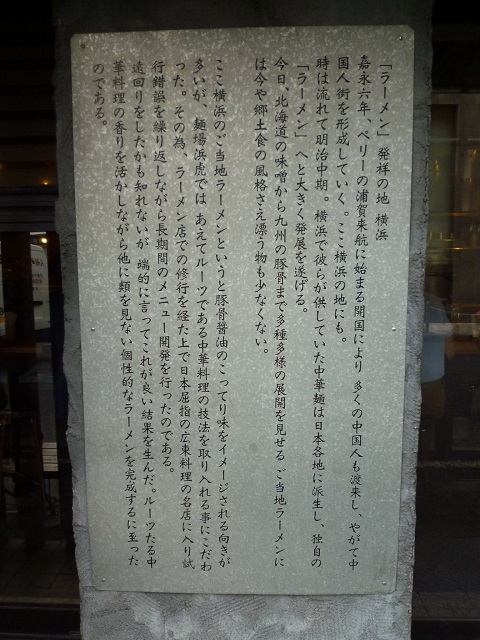 「ラーメン」発祥の地 横浜
嘉永六年、ペリーの浦賀来航に始まる開国により 多くの中国人も渡来し、やがて中
国人街を形成していく。ここ横浜の地にも。
時は流れて明治中期。横浜で彼らが供していた中華麺は日本各地に派生し、独自の
「ラーメン」へと大きく発展を遂げる。
今日、北海道の味噌から九州の豚骨まで多種多様の展開を見せる ご当地ラーメンに
は今や郷土食の風格さえ漂う物も少なくない。
ここ横浜のご当地ラーメンというと豚骨醤油のこってり味をイメージされる向きが
多いが、麺場浜虎では、あえてルーツである中華料理の技法を取り入れる事にこだわ
った。その為、ラーメン店での修行を経た上で日本屈指の広東料理の名店に入り試
行錯誤を繰り返しながら長期間のメニュー開発を行ったのである。
遠回りをしたかも知れないが 端的に言ってこれが良い結果を生んだ。ルーツたる中
華料理の香りを活かしながら他に類を見ない個性的なラーメンを完成するに至った
のである。